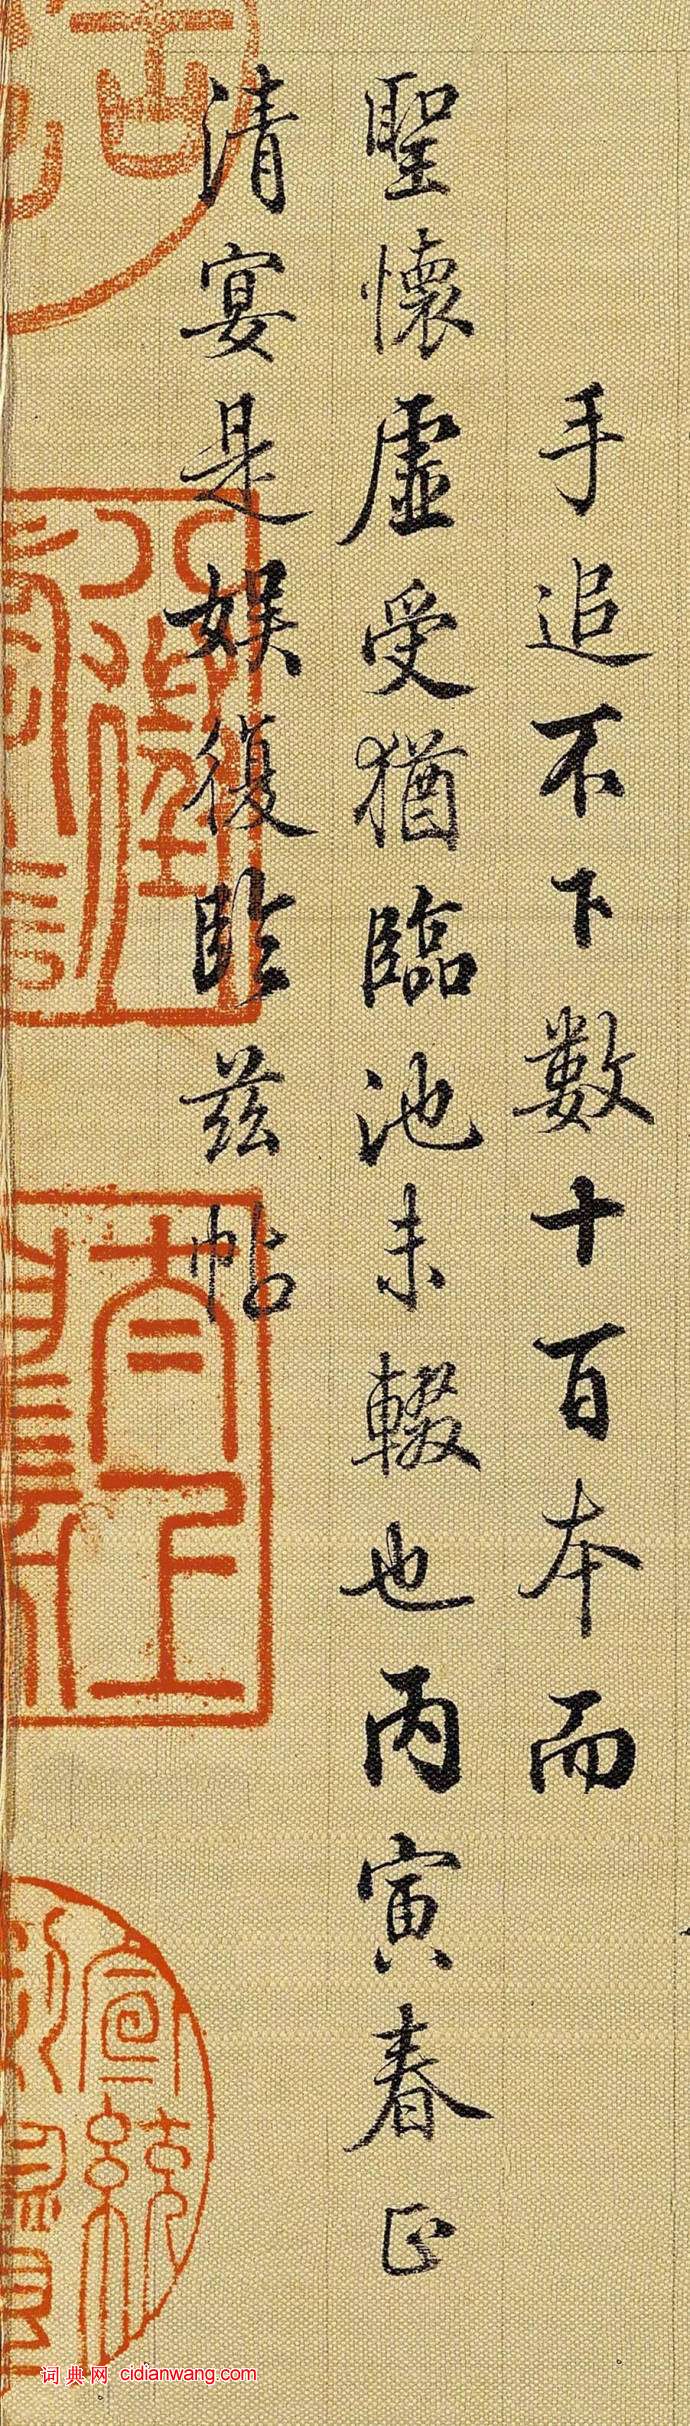 手追不下數十百本而
聖懷虛受猶臨池未輟也丙寅春正
清宴是娛復臨茲帖
太上
宣統
词典网 cidianwang.com